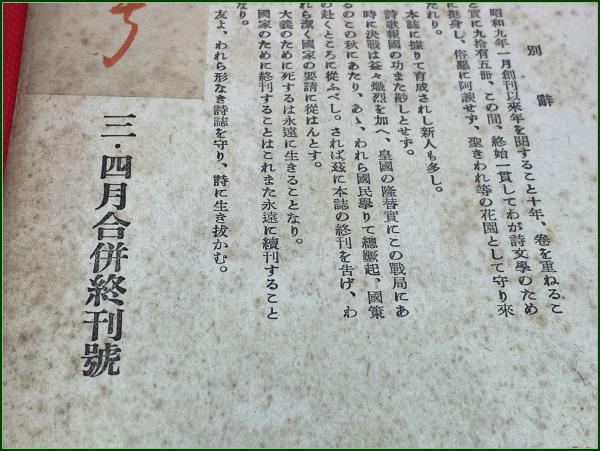 別辭
昭和九年一月創刊以來年を閱すること十年、卷を重ねるこ
と實に九拾有五册、この間、終始一貫してわが詩文學のため
に挺身し、俗惡に阿諛せず、聖きわれ等の花園として守り來
たれり。
本誌に據りて育成されし新人も多し。
詩歌報國の功また尠しとせず。
時に決戰は益々熾烈を加へ、皇國の隆替實にこの戰局にあ
るのこの秋にあたり、あゝ、われら國民擧りて總蹶起、國策
の赴くところに從ふべし。されば玆に本誌の終刊を告げ、わ
れら潔く國家の要請に從はんとす。
大義のために死するは永遠に生きることなり。
國家のために終刊することはこれまた永遠に續刊すること
なり。
友よ、われら形なき詩誌を守り、詩に生き拔かむ。
三・四月合併終刊號